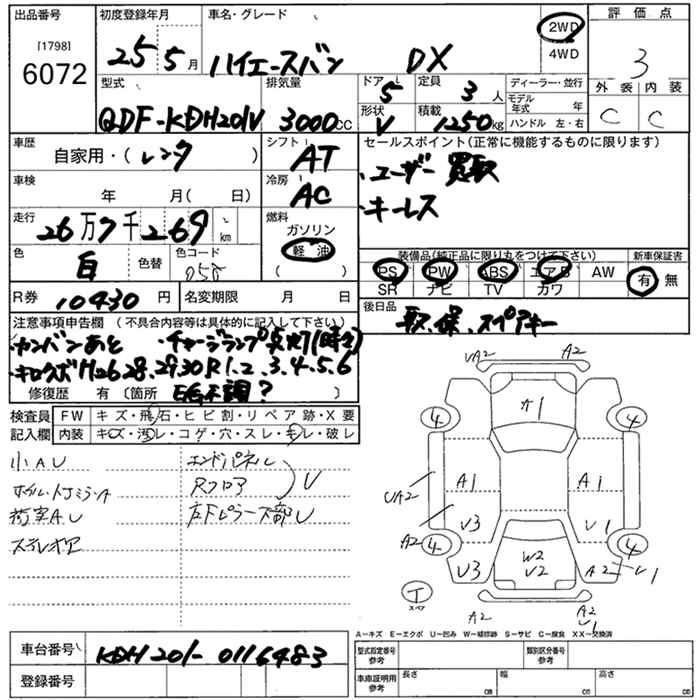 出品番号
[1798]
6072
初度登録年月
25 5月
車名・グレード
ハイエースバン DX
2WD
4WD
評価点
3
外装 内装
C C
型式
QDF-KDH201V
排気量
3000cc
ドア
5
定員
3人
形状
V
積載
1250kg
ディーラー・並行
モデル年式 年
ハンドル 左・右
車歴
自家用・(レンタ)
シフト
AT
セールスポイント(正常に機能するものに限ります)
・ユーザー買取
・キーレス
車検
年 月( 日)
冷房
AC
走行
26万7千269km
燃料
ガソリン
軽油
( )
色
白
色替
色コード
058
装備品(純正品に限り丸をつけて下さい)
PS PW ABS エアB AW
SR ナビ TV カワ
新車保証書
有 無
R券
10430円
名変期限 月 日
後日品
取、保、スペアキー
注意事項申告欄 (不具合内容等は具体的に記入して下さい)
・カンバンあと ・チャージランプ点灯(時々)
・キロクボH26.28.29.30 R1.2.3.4.5.6
修復歴 有 〔箇所 E/G不調? 〕
検査員記入欄
FW キズ・飛石・ヒビ割・リペア跡・X要
内装 キズ・汚レ・コゲ・穴・スレ・モレ・破レ
小AU
ホイル・ドアミラーA
荷室AU
ステレオア
エンドパネル
Rフロア
U
左Fピラー下部U
UA2
A2
A1
4
4
A1
A1
UA2
A2
U3
U1
4
4
U3
W2
U2
A2
U1
T
スペア
A2
A2
U1
A-キズ E-エクボ U-凹み W-補修跡 S-サビ C-腐食 XX-交換済
車台番号
KDH201-0116483
登録番号
型式指定番号
参考
類別区分番号
参考
車庫証明用
参考
長さ cm
幅 cm
高さ cm